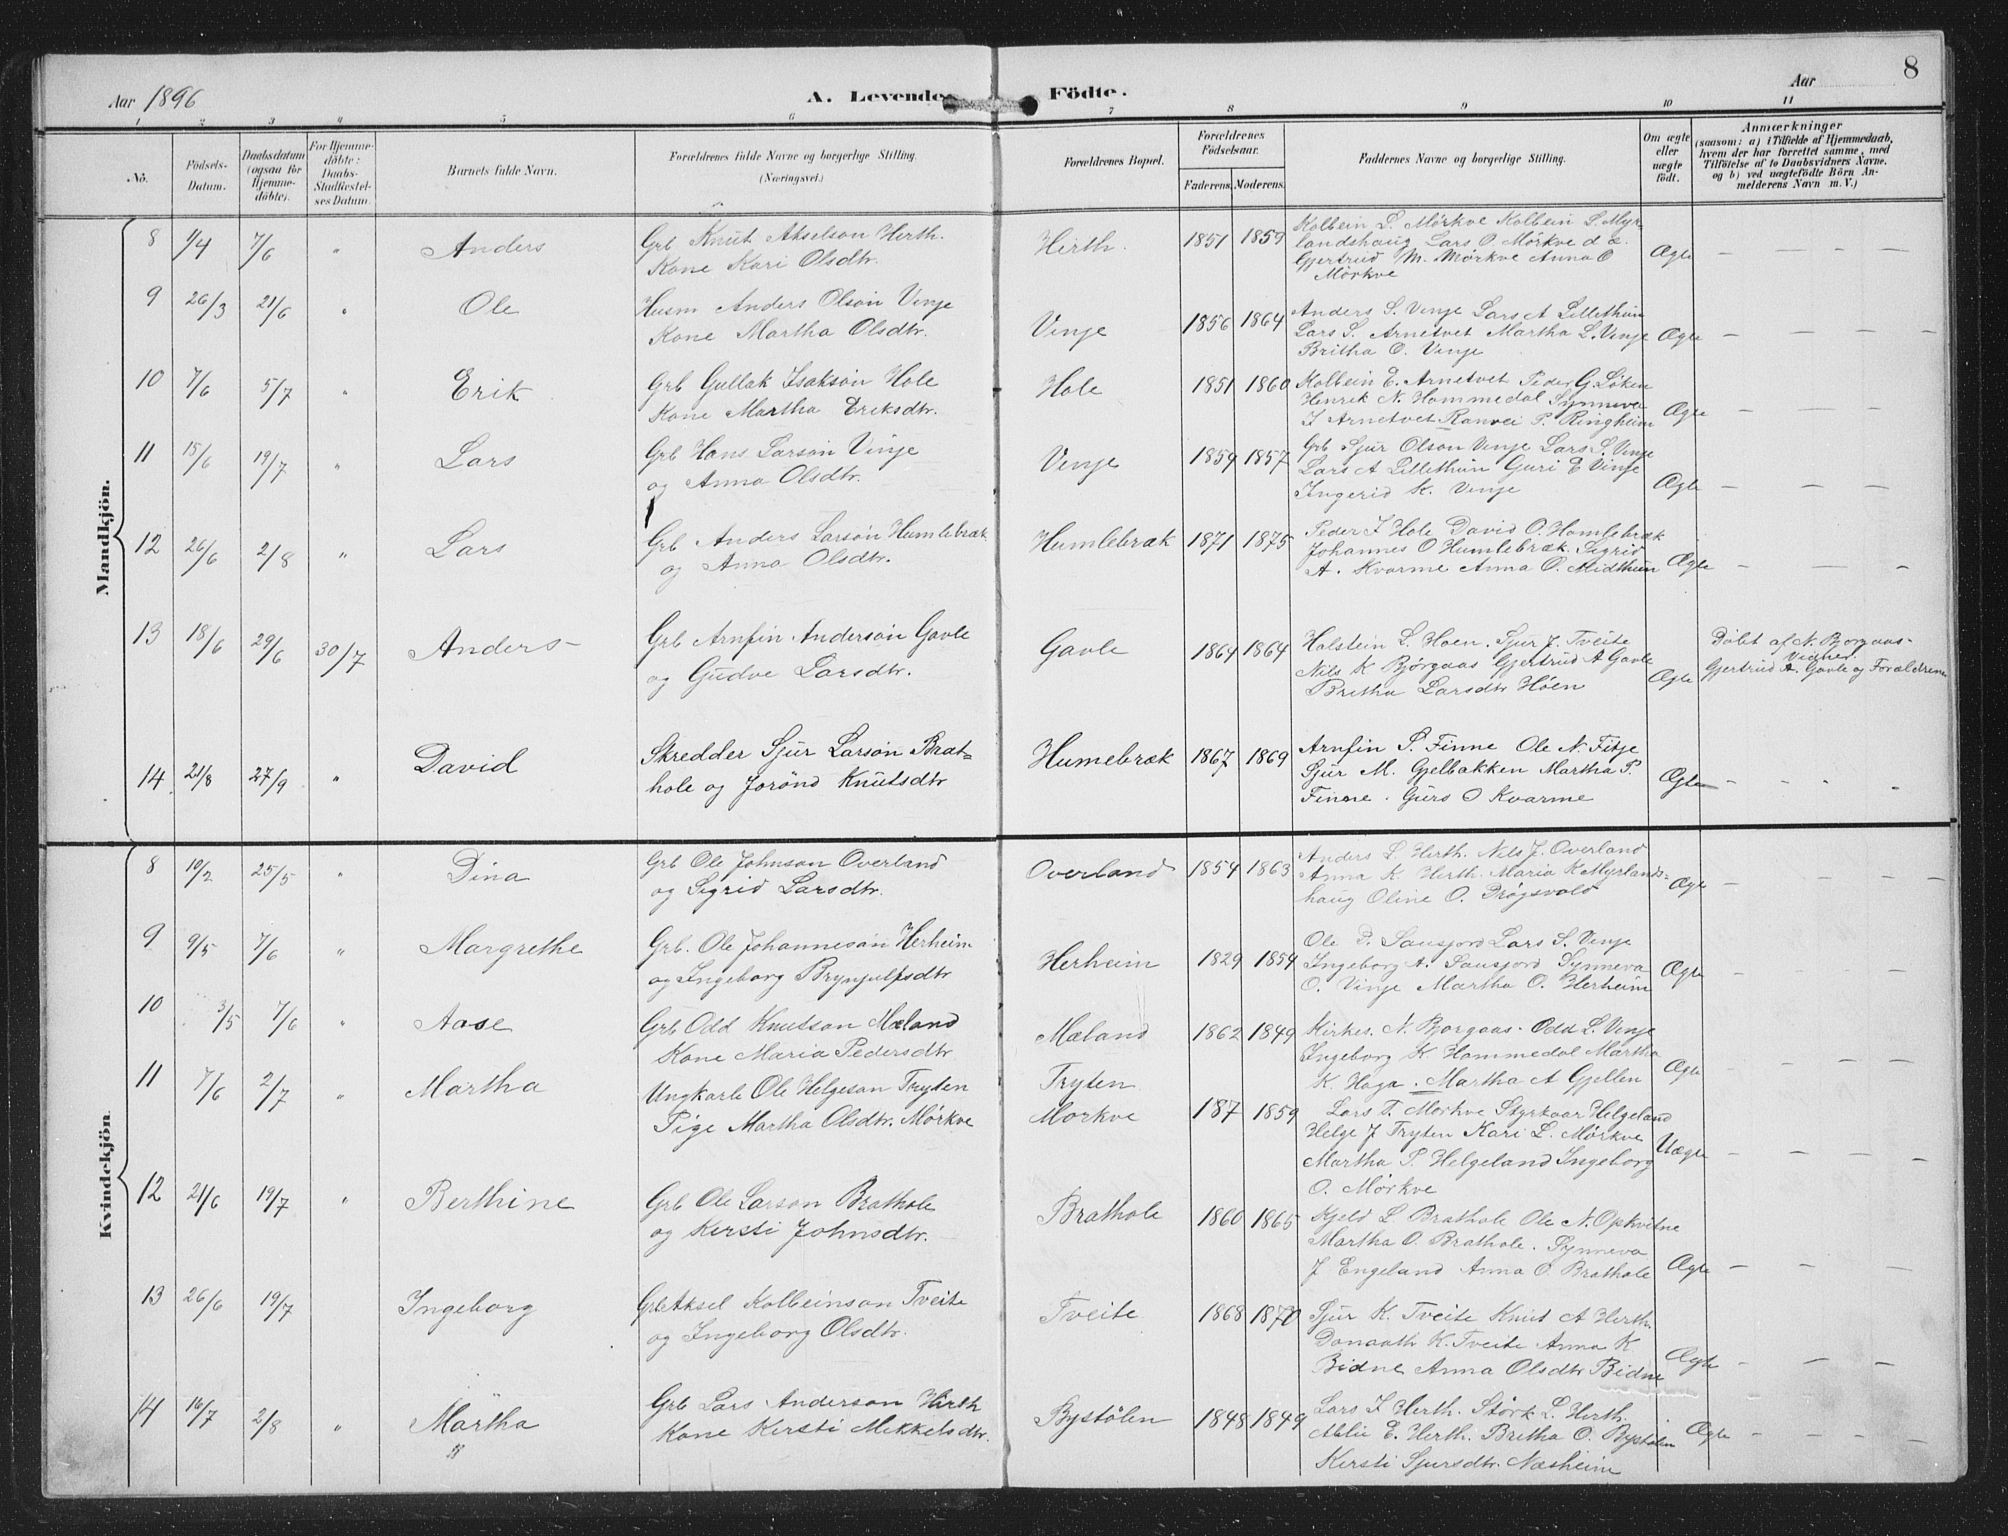 8
Aar 1896
A. Levende Födte.
Aar
1 2 3 4 5 6 7 8 9 10 11
No.
Födsels-Datum.
Daabsdatum (ogsaa for Hjemmedöbte).
For Hjemmedöbte: Daabs-Stadfæstelses Datum.
Barnets fulde Navn.
Forældrenes fulde Navne og borgerlige Stilling. (Næringsvei.)
Forældrenes Bopæl.
Forældrenes Födselsaar.
Faderens. Moderens.
Faddernes Navne og borgerlige Stilling.
Om ægte eller uægte födt.
Anmærkninger
(saasom: a) i Tilfælde af Hjemmedaab, hvem der har forrettet samme, med Tilföielse af to Daabsvidners Navne. og b) ved uægtefödte Börn Anmelderens Navn m. V.)
Mandkjön.
8 1/4 7/6 " Anders
Grb Knut Akselson Herth.
Kone Kari Olsdtr.
Hirth. 1851 1859
Kolbein L. Mørkve Kolbein S. Myr-
landshaug Lars O. Mörkve d æ.
Gjertrud M. Mörkve Anna O
Mörkve
Ægte
9 26/3 21/6 " Ole
Husm Anders Olson Vinje
Kone Martha Olsdtr.
Vinje 1856 1864
Anders S. Vinje Lars A Lillethun
Lars S. Arnetvet Martha L. Vinje
Britha O. Vinje
Ægte
10 7/6 5/7 " Erik
Grb Gullak Isakson Hole
Kone Martha Eriksdtr.
Hole 1851 1860
Kolbein E. Arnetvet Peder G. Löken
Henrik N. Hommedal Synneva
I Arnetvet Ranvei P. Ringheim
Ægte
11 15/6 19/7 " Lars
Grb Hans Larson Vinje
og Anna Olsdtr.
Vinje 1859 1857
Grb Sjur Olson Vinje Lars S. Vinje
Lars A Lillethun Guri E Vinje
Ingerid K. Vinje
Ægte
12 26/6 2/8 " Lars
Grb Anders Larson Humlebræk
og Anna Olsdtr.
Humlebræk 1871 1875
Peder I Hole David O. Homlebræk
Johannes O Humlebræk. Sigrid
A. Kvarme Anna O. Midthun
Ægte
13 18/6 29/6 30/7 Anders
Grb Arnfin Anderson Gavle
og Gudve Larsdtr.
Gavle 1864 1864
Holstein L. Hoen. Sjur J. Tveite
Nils K Bjørgaas Gjertrud A Gavle
Britha Larsdtr Höen
Ægte
Döbt af N. Bjorgaas-
Vidner.
Gjertrud A. Gavle og Forældrene
14 21/8 27/9 " David
Skredder Sjur Larson Brat=
hole og Jorönd Knutsdtr
Humebræk 1867 1869
Arnfin S. Finne Ole N. Fitje
Sjur M. Gjelbakken Martha P.
Finne. Gurs O Kvarme
Ægte
Kvindekjön.
8 10/2 25/5 " Dina
Grb Ole Johnson Overland
og Sigrid Larsdtr.
Overland 1854 1863
Anders L Herth. Nils J. Overland
Anna K Herth. Maria K Myrlands=
haug Oline O. Trögsvold
Ægte
9 9/5 7/6 " Margrethe
Grb. Ole Johanneson Herheim
og Ingeborg Brynjulfsdtr
Herheim 1829 1854
Ole P. Sausjord Lars S. Vinje
Ingeborg A. Sausjord Synneva
O. Vinje Martha O. Herheim
Ægte
10 3/5 7/6 " Aase
Grb Odd Knutson Mæland
Kone Maria Pedersdtr
Mæland 1862 1849
Kirkes. N. Bjorgaas. Odd L. Vinje
Ingeborg K Hommedal Martha
K. Haga. Martha A Gjellen
Ægte
11 7/6 2/7 " Martha
Ungkarl Ole Helgeson Tryten
Pige Martha Olsdtr. Mörkve
Tryten
Morkve 187 1859
Lars T. Morkve Styrkaar Helgeland
Helge J Tryten Kari L. Mörkve
Martha P. Helgeland Ingeborg
O. Mörkve
Uægte
12 21/6 19/7 " Berthine
Grb Ole Larson Brathole
og Kersti Johnsdtr.
Brathole 1860 1865
Kjeld L Brathole Ole N. Opkvitne
Martha O. Brathole. Synneva
J Engeland Anna O. Brathole
Ægte
13 26/6 19/7 Ingeborg
Grb Aksel Kolbeinson Tveite
og Ingeborg Olsdtr.
Tveite 1868 1870
Sjur K. Tveite Knut A Herth.
Donaath K. Tveite Anna K
Bidne Anna Olsdtr Bidne
Ægte
14 16/7 2/8 " Martha
Grb Lars Anderson Hirth
Kone Kersti Mikkelsdtr.
Bystölen 1848 1849
Lars I Herth. Störk L. Herth.
Ablie E. Herth. Britha O. Bystölen
Kersti Sjursdtr. Næsheim
Ægte